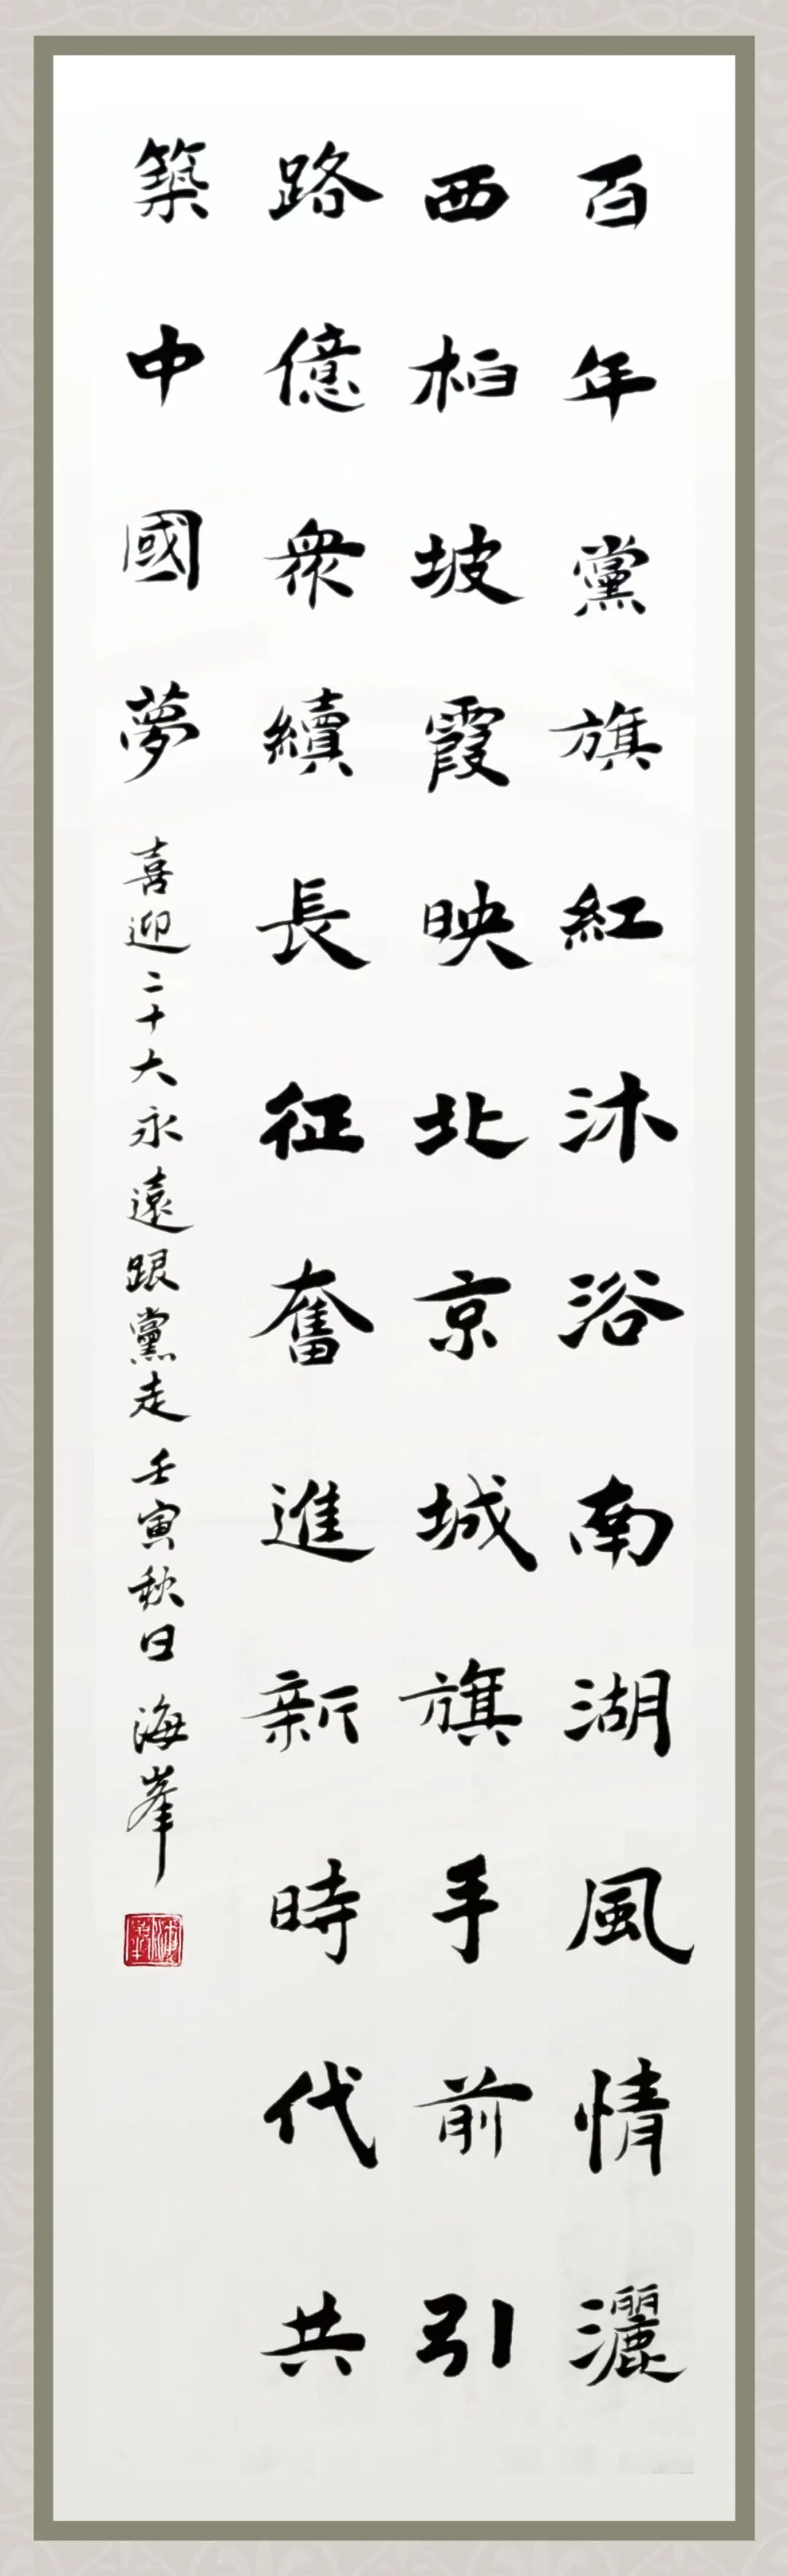 百年黨旗紅沐浴南湖風情灑
西柏坡霞映北京城旗手前引
路億衆續長征奮進新時代共
築中國夢
喜迎二十大永遠跟黨走 壬寅秋日 海峯